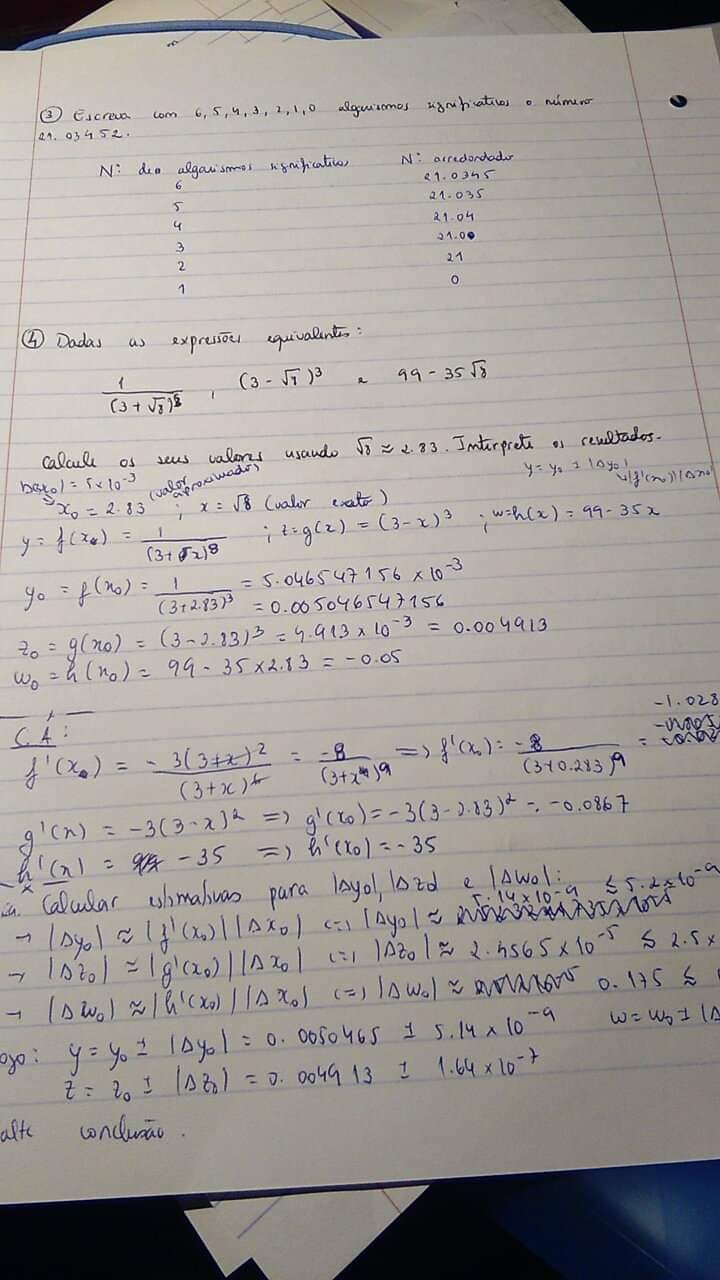 ③ Escreva com 6, 5, 4, 3, 2, 1, 0 algarismos significativos o número
21.03452.
Nº: dea algarismos significativos Nº: arredondado
6 21.0345
5 21.035
4 21.04
3 21.00
2 21
1 0
④ Dadas as expressões equivalentes:
1/(3+√8)^8 , (3-√8)^3 e 99-35√8
Calcule os seus valores usando √8 ≈ 2.83. Interprete os resultados.
= 5×10^-3 (valor aproximado) y = y₀ ± |Δy₀|
|f'(x₀)||Δx₀|
x₀ = 2.83 ; x = √8 (valor exato)
y = f(x) = 1/(3+x)^8 ; z = g(x) = (3-x)^3 ; w = h(x) = 99-35x
y₀ = f(x₀) = 1/(3+2.83)^3 = 5.046547156 × 10^-3
= 0.005046547156
z₀ = g(x₀) = (3-2.83)^3 = 4.913×10^-3 = 0.004913
w₀ = h(x₀) = 99 - 35×2.83 = -0.05
C.A:
f'(x) = -3(3+x)^2/(3+x)^6 = -8/(3+x)^9 => f'(x₀) = -8/(3+0.283)^9 = -1.028
g'(x) = -3(3-x)^2 => g'(x₀) = -3(3-2.83)^2 = -0.0867
h'(x) = -35 => h'(x₀) = -35
Calcular estimativas para |Δy₀|, |Δz₀| e |Δw₀|:
→ |Δy₀| ≈ |f'(x₀)||Δx₀| (=) |Δy₀| ≈ 5.14×10^-9 ≤ 5.2×10^-9
→ |Δz₀| ≈ |g'(x₀)||Δx₀| (=) |Δz₀| ≈ 2.4565×10^-5 ≤ 2.5×
→ |Δw₀| ≈ |h'(x₀)||Δx₀| (=) |Δw₀| ≈ 0.175 ≤
ogo: y = y₀ ± |Δy₀| = 0.0050465 ± 5.14×10^-9 w = w₀ ± |Δ
z = z₀ ± |Δz₀| = 0.004913 ± 1.64×10^-7
alte conclusão.